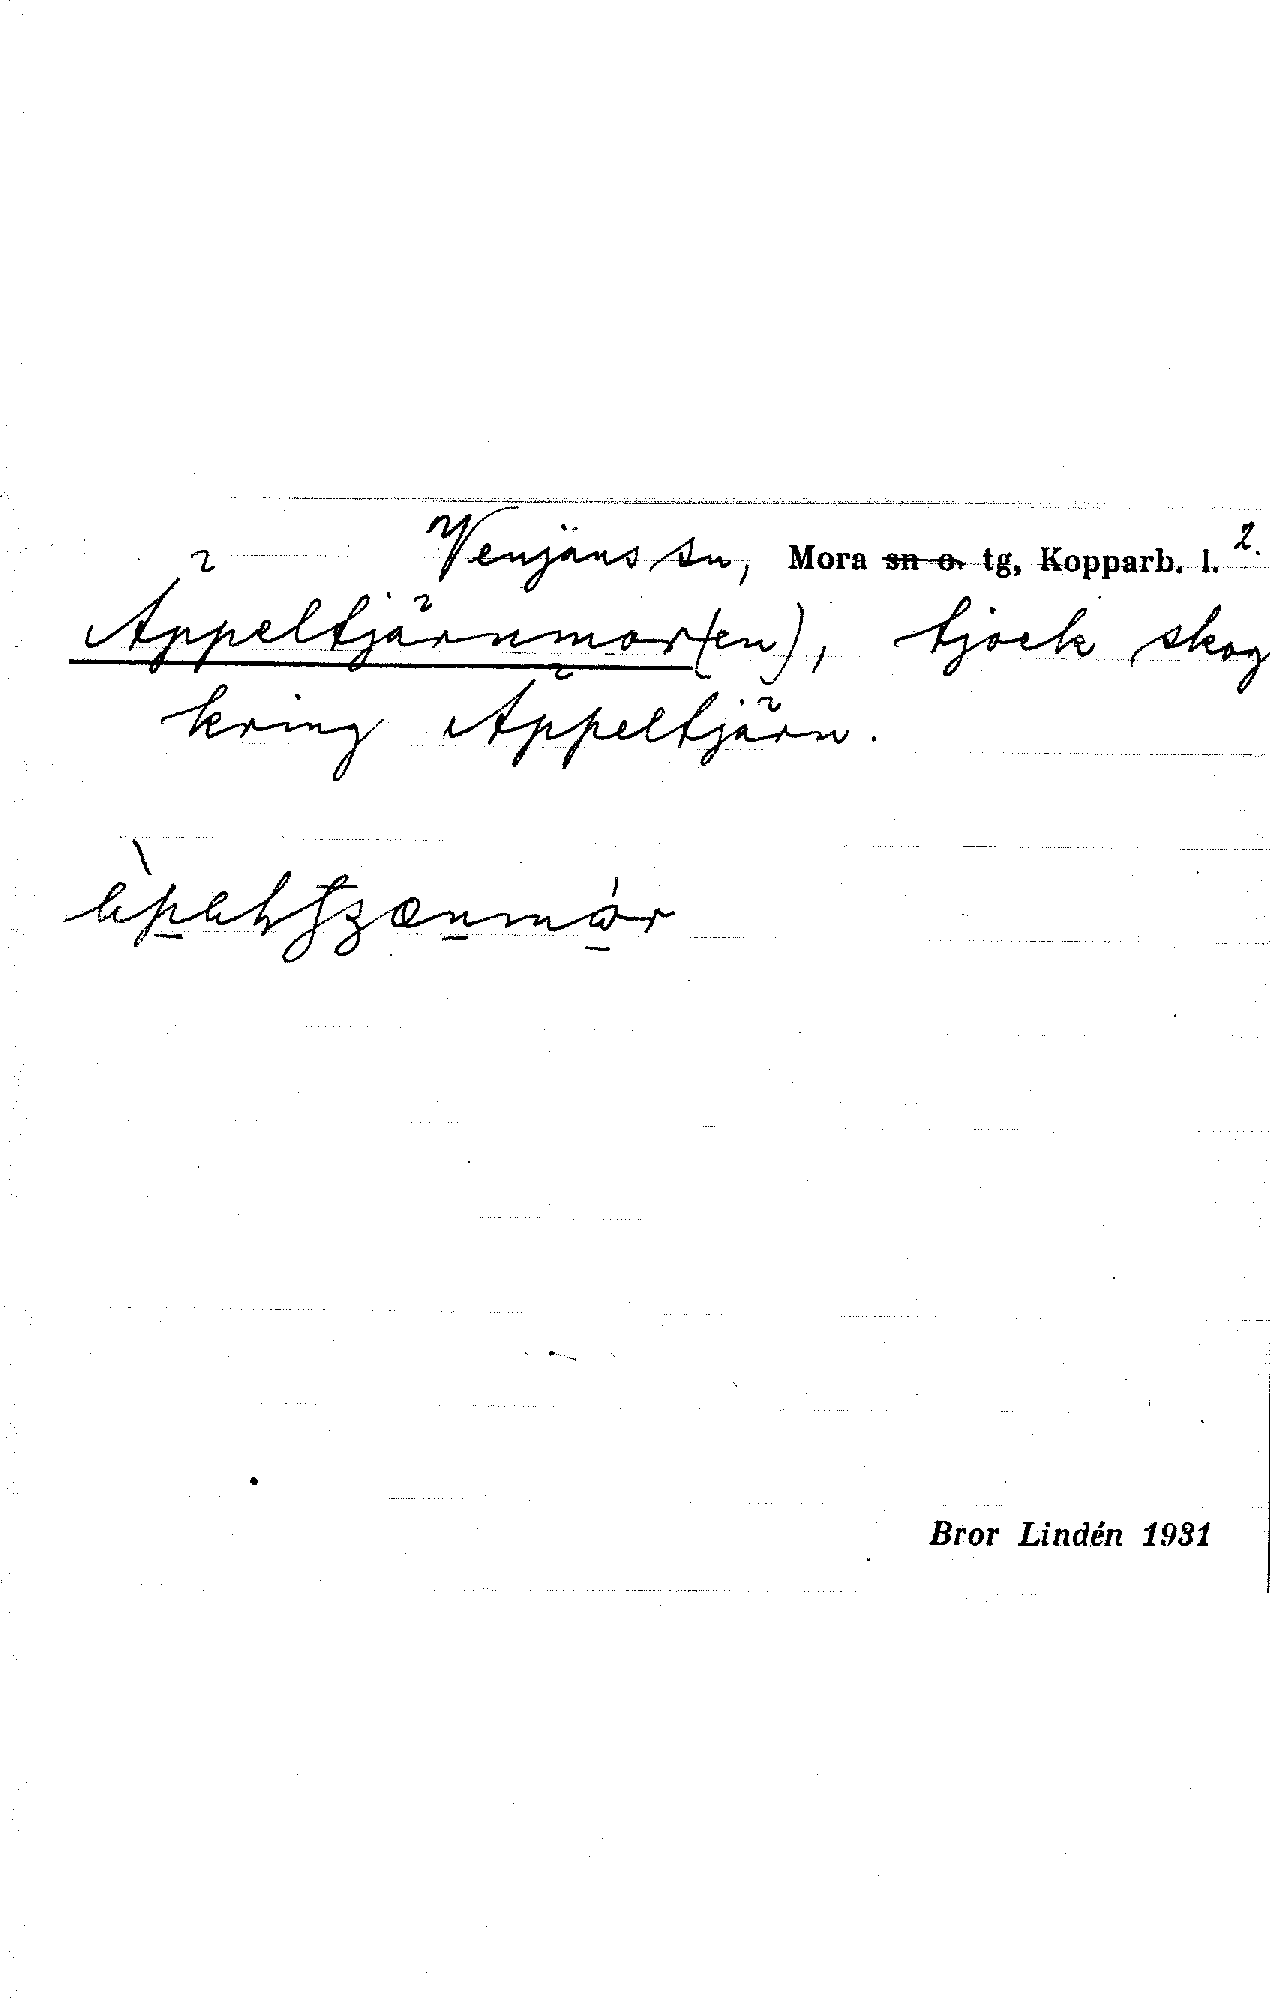 Venjäns sn, Mora sn o. tg, Kopparb. l. 2.
Äppeltjärnmor(en), tjock skog
kring Äppeltjärn.
Bror Lindén 1931